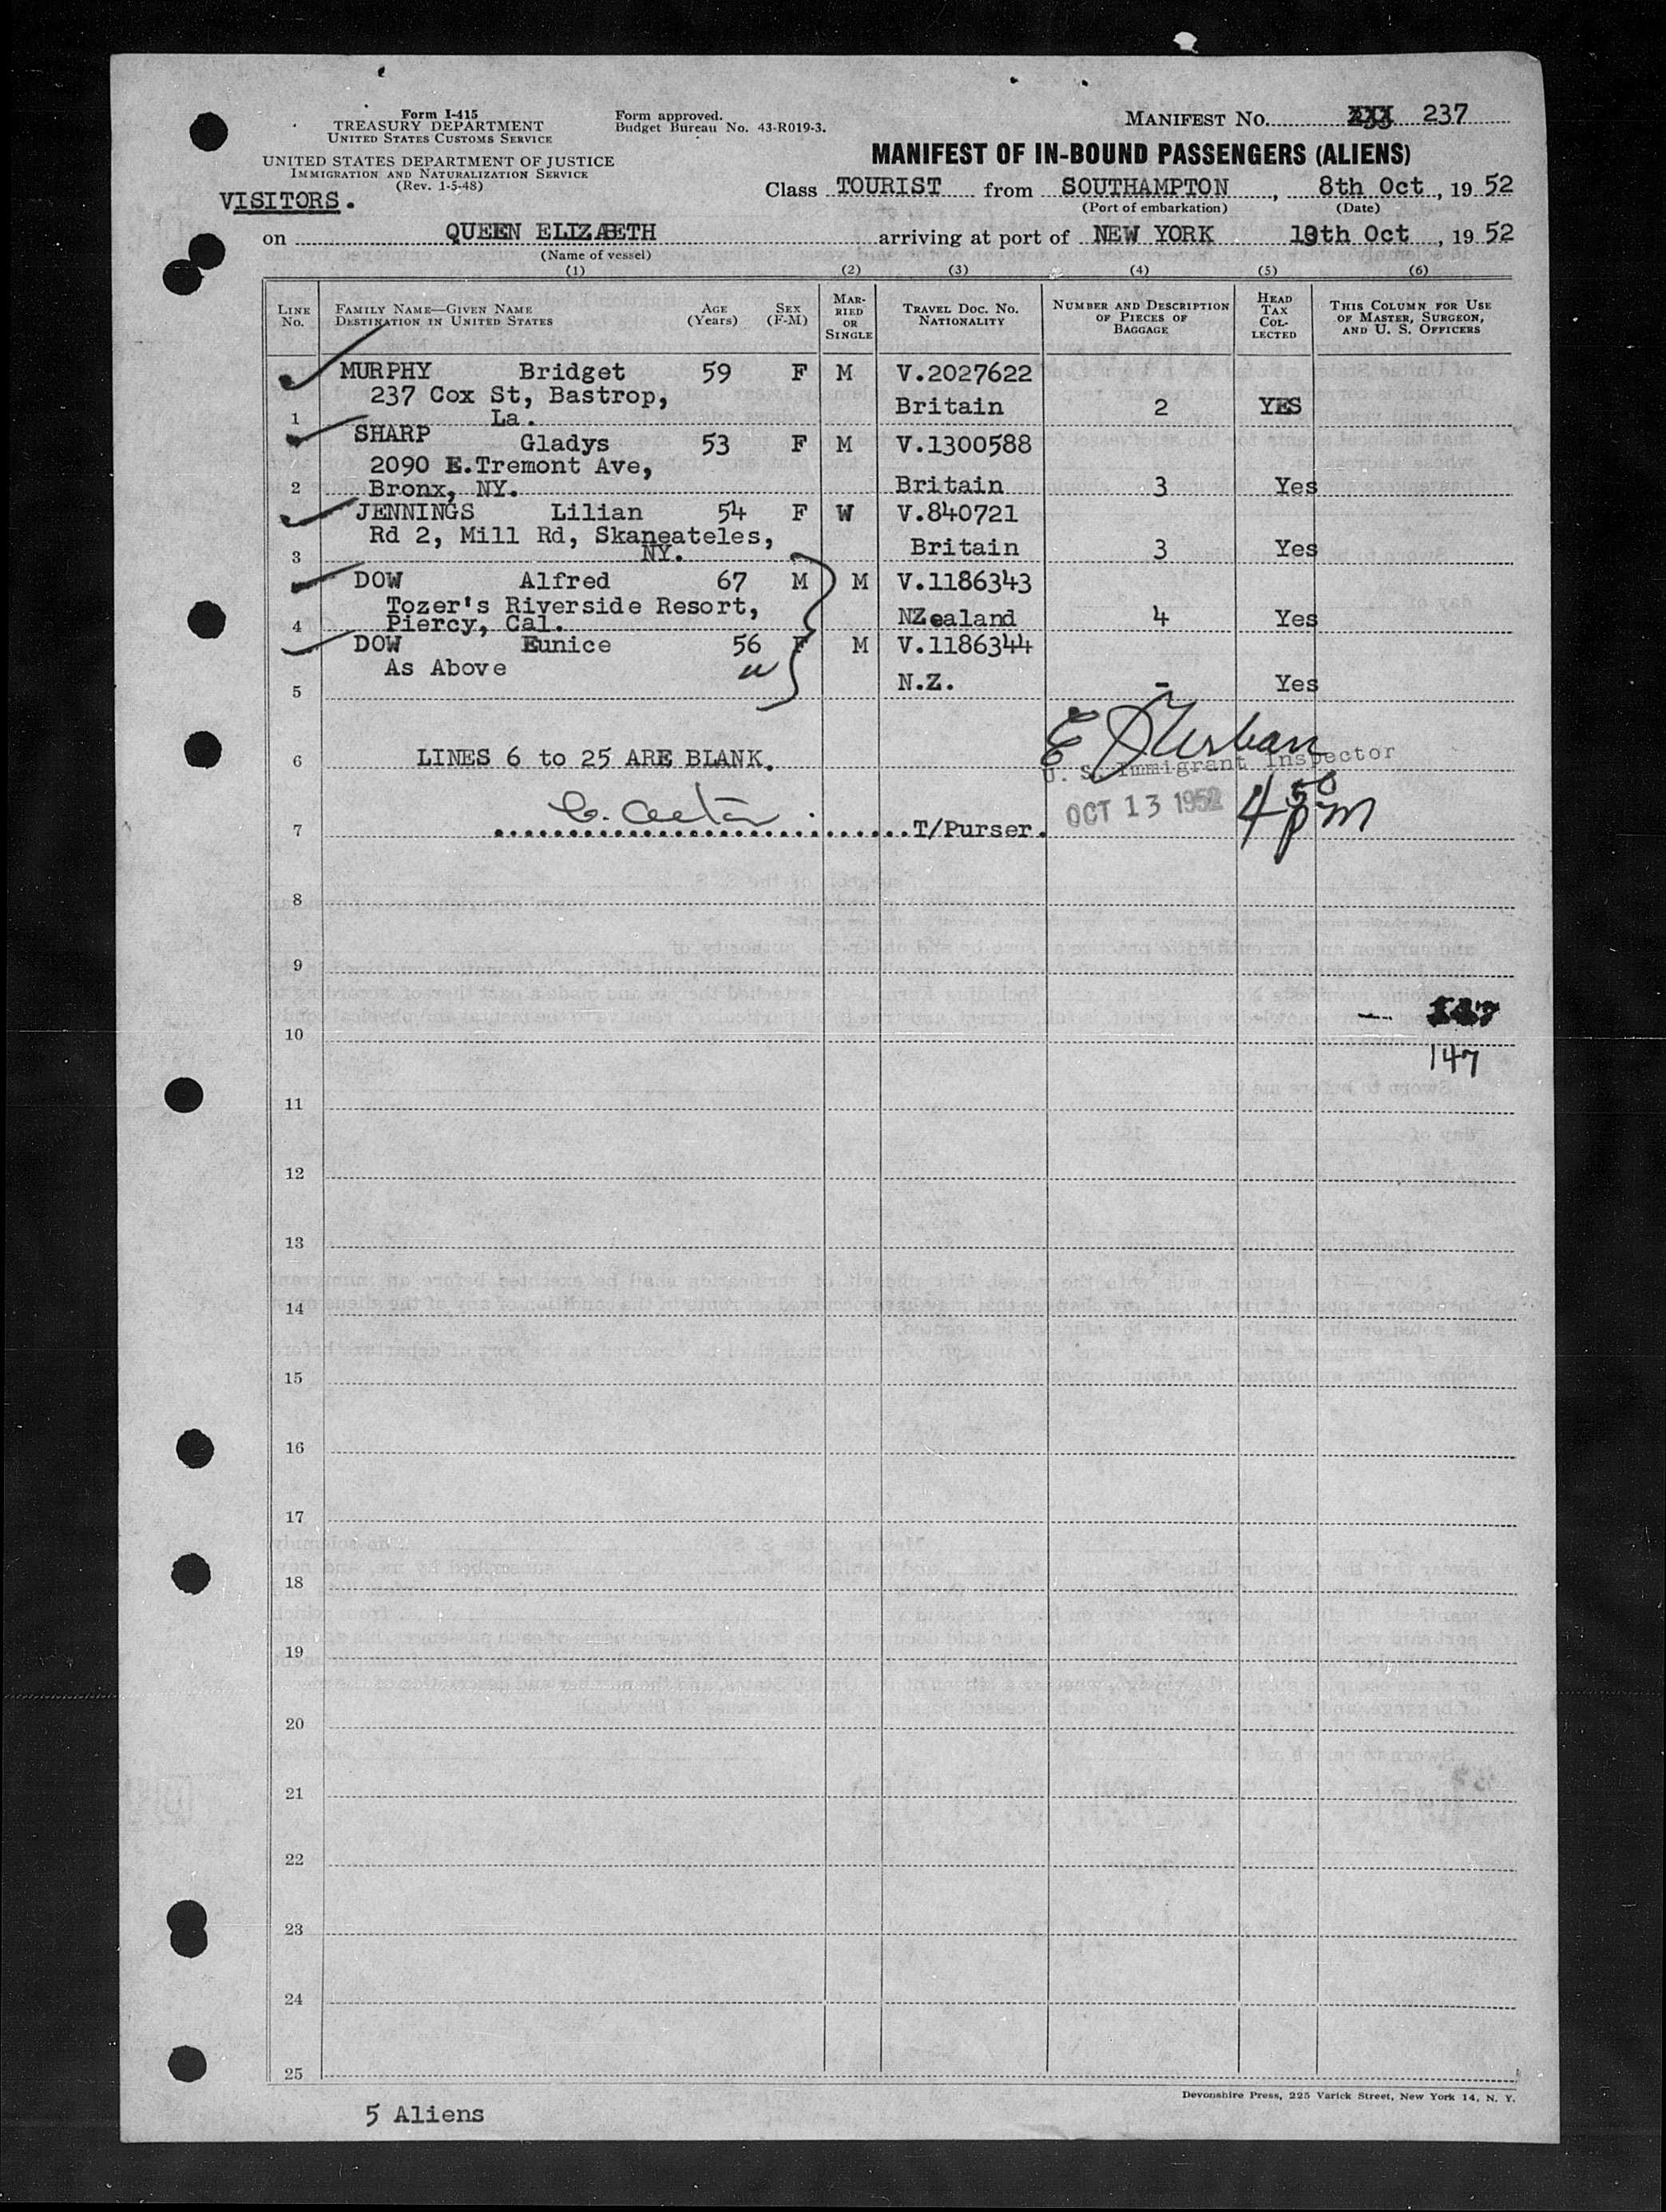 Form I-415
TREASURY DEPARTMENT
UNITED STATES CUSTOMS SERVICE
UNITED STATES DEPARTMENT OF JUSTICE
IMMIGRATION AND NATURALIZATION SERVICE
(Rev. 1-5-48)
Form approved.
Budget Bureau No. 43-R019-3.
MANIFEST NO. 237
MANIFEST OF IN-BOUND PASSENGERS (ALIENS)
VISITORS.
Class TOURIST from SOUTHAMPTON, 8th Oct, 19 52
(Port of embarkation) (Date)
on QUEEN ELIZABETH arriving at port of NEW YORK 13th Oct, 19 52
(Name of vessel)
(1) (2) (3) (4) (5) (6)
LINE No.
FAMILY NAME—GIVEN NAME
DESTINATION IN UNITED STATES
AGE (Years)
SEX (F-M)
MARRIED OR SINGLE
TRAVEL DOC. NO. NATIONALITY
NUMBER AND DESCRIPTION OF PIECES OF BAGGAGE
HEAD TAX COLLECTED
THIS COLUMN FOR USE OF MASTER, SURGEON, AND U. S. OFFICERS
MURPHY Bridget 59 F M V.2027622
237 Cox St, Bastrop,
1 La. Britain 2 YES
SHARP Gladys 53 F M V.1300588
2090 E.Tremont Ave,
2 Bronx, NY. Britain 3 Yes
JENNINGS Lilian 54 F W V.840721
Rd 2, Mill Rd, Skaneateles,
3 NY. Britain 3 Yes
DOW Alfred 67 M M V.1186343
Tozer's Riverside Resort,
4 Piercy, Cal. NZealand 4 Yes
DOW Eunice 56 F M V.1186344
As Above w
5 N.Z. - Yes
6 LINES 6 to 25 ARE BLANK.
U. S. Immigrant Inspector
OCT 13 1952 4 50 pm
7 T/Purser.
8
9
10
147
11
12
13
14
15
16
17
18
19
20
21
22
23
24
25
Devonshire Press, 225 Varick Street, New York 14, N. Y.
5 Aliens